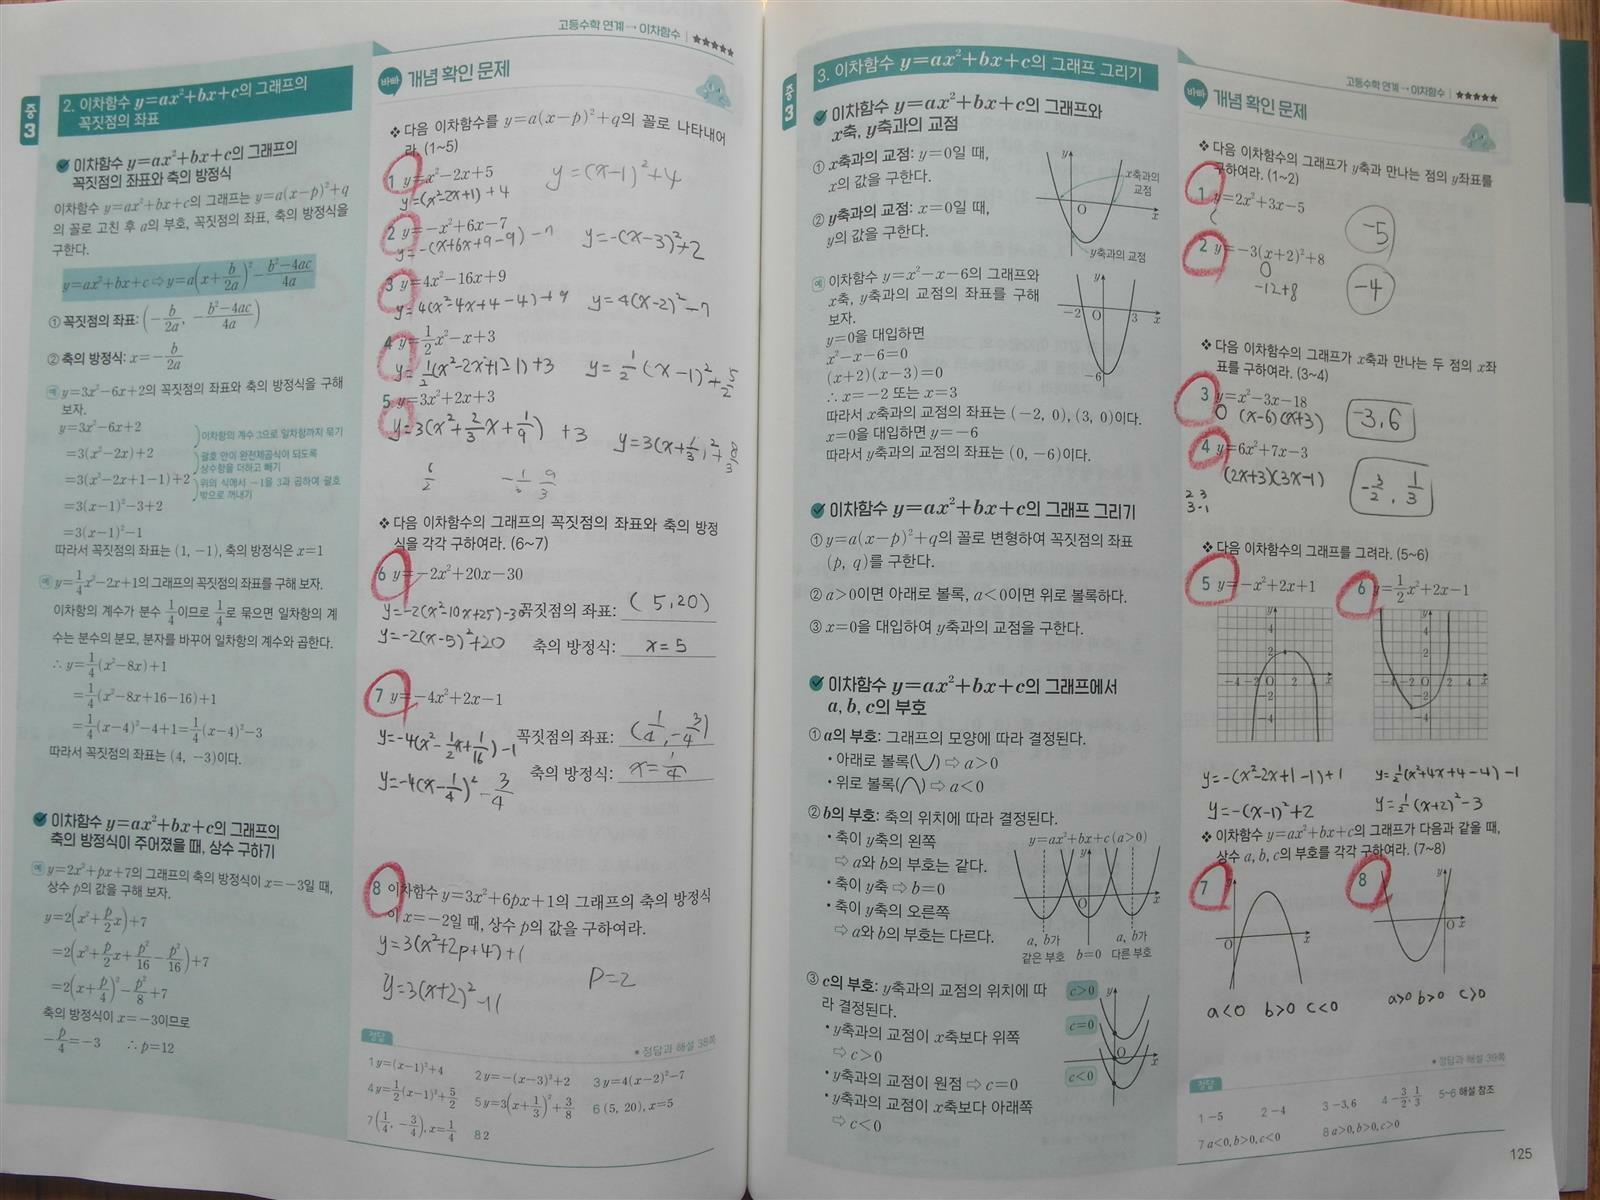 고등수학 연계 → 이차함수 ★★★★★
중3
2. 이차함수 y=ax²+bx+c의 그래프의
꼭짓점의 좌표
이차함수 y=ax²+bx+c의 그래프의
꼭짓점의 좌표와 축의 방정식
이차함수 y=ax²+bx+c의 그래프는 y=a(x-p)²+q
의 꼴로 고친 후 a의 부호, 꼭짓점의 좌표, 축의 방정식을
구한다.
y=ax²+bx+c ⇨ y=a(x+b/2a)²-(b²-4ac)/4a
① 꼭짓점의 좌표: (-b/2a, -(b²-4ac)/4a)
② 축의 방정식: x=-b/2a
예 y=3x²-6x+2의 꼭짓점의 좌표와 축의 방정식을 구해
보자.
y=3x²-6x+2
이차항의 계수 3으로 일차항까지 묶기
=3(x²-2x)+2
괄호 안이 완전제곱식이 되도록
상수항을 더하고 빼기
=3(x²-2x+1-1)+2
위의 식에서 -1을 3과 곱하여 괄호
밖으로 꺼내기
=3(x-1)²-3+2
=3(x-1)²-1
따라서 꼭짓점의 좌표는 (1, -1), 축의 방정식은 x=1
예 y=1/4x²-2x+1의 그래프의 꼭짓점의 좌표를 구해 보자.
이차항의 계수가 분수 1/4이므로 1/4로 묶으면 일차항의 계
수는 분수의 분모, 분자를 바꾸어 일차항의 계수와 곱한다.
∴ y=1/4(x²-8x)+1
=1/4(x²-8x+16-16)+1
=1/4(x-4)²-4+1=1/4(x-4)²-3
따라서 꼭짓점의 좌표는 (4, -3)이다.
이차함수 y=ax²+bx+c의 그래프의
축의 방정식이 주어졌을 때, 상수 구하기
예 y=2x²+px+7의 그래프의 축의 방정식이 x=-3일 때,
상수 p의 값을 구해 보자.
y=2(x²+p/2x)+7
=2(x²+p/2x+p²/16-p²/16)+7
=2(x+p/4)²-p²/8+7
축의 방정식이 x=-3이므로
-p/4=-3 ∴ p=12
바빠 개념 확인 문제
❖ 다음 이차함수를 y=a(x-p)²+q의 꼴로 나타내어
라. (1~5)
1 y=x²-2x+5 y=(x-1)²+4
y=(x²-2x+1)+4
2 y=-x²+6x-7
y=-(x+6x+9-9)-7 y=-(x-3)²+2
3 y=4x²-16x+9
y=4(x²-4x+4-4)+9 y=4(x-2)²-7
4 y=1/2x²-x+3
y=1/2(x²-2x+1-1)+3 y=1/2(x-1)²+5/2
5 y=3x²+2x+3
y=3(x²+2/3x+1/9) +3 y=3(x+1/3)²+8/3
6/2 -1/3 9/3
❖ 다음 이차함수의 그래프의 꼭짓점의 좌표와 축의 방정
식을 각각 구하여라. (6~7)
6 y=-2x²+20x-30
y=-2(x²-10x+25)-30 꼭짓점의 좌표: (5,20)
y=-2(x-5)²+20 축의 방정식: x=5
7 y=-4x²+2x-1
y=-4(x²-1/2x+1/16)-1 꼭짓점의 좌표: (1/4, -3/4)
축의 방정식: x=1/4
y=-4(x-1/4)²-3/4
8 이차함수 y=3x²+6px+1의 그래프의 축의 방정식
이 x=-2일 때, 상수 p의 값을 구하여라.
y=3(x²+2p+4)+1
P=2
y=3(x+2)²-11
정답
* 정답과 해설 38쪽
1 y=(x-1)²+4 2 y=-(x-3)²+2 3 y=4(x-2)²-7
4 y=1/2(x-1)²+5/2 5 y=3(x+1/3)²+3/8 6 (5, 20), x=5
7 (1/4, -3/4), x=1/4 8 2
중3
3. 이차함수 y=ax²+bx+c의 그래프 그리기
이차함수 y=ax²+bx+c의 그래프와
x축, y축과의 교점
① x축과의 교점: y=0일 때,
x의 값을 구한다.
② y축과의 교점: x=0일 때,
y의 값을 구한다.
y
x축과의
교점
O
x
y축과의 교점
예 이차함수 y=x²-x-6의 그래프와
x축, y축과의 교점의 좌표를 구해
보자.
y=0을 대입하면
x²-x-6=0
(x+2)(x-3)=0
∴ x=-2 또는 x=3
따라서 x축과의 교점의 좌표는 (-2, 0), (3, 0)이다.
x=0을 대입하면 y=-6
따라서 y축과의 교점의 좌표는 (0, -6)이다.
y
-2 O 3 x
-6
이차함수 y=ax²+bx+c의 그래프 그리기
① y=a(x-p)²+q의 꼴로 변형하여 꼭짓점의 좌표
(p, q)를 구한다.
② a>0이면 아래로 볼록, a<0이면 위로 볼록하다.
③ x=0을 대입하여 y축과의 교점을 구한다.
이차함수 y=ax²+bx+c의 그래프에서
a, b, c의 부호
① a의 부호: 그래프의 모양에 따라 결정된다.
• 아래로 볼록(∪) ⇨ a>0
• 위로 볼록(∩) ⇨ a<0
② b의 부호: 축의 위치에 따라 결정된다.
• 축이 y축의 왼쪽
⇨ a와 b의 부호는 같다.
• 축이 y축 ⇨ b=0
• 축이 y축의 오른쪽
⇨ a와 b의 부호는 다르다.
y=ax²+bx+c (a>0)
a, b가
같은 부호
b=0
a, b가
다른 부호
③ c의 부호: y축과의 교점의 위치에 따
라 결정된다.
• y축과의 교점이 x축보다 위쪽
⇨ c>0
• y축과의 교점이 원점 ⇨ c=0
• y축과의 교점이 x축보다 아래쪽
⇨ c<0
c>0 y
c=0
O x
c<0
고등수학 연계 → 이차함수 ★★★★★
바빠 개념 확인 문제
❖ 다음 이차함수의 그래프가 y축과 만나는 점의 y좌표를
구하여라. (1~2)
1 y=2x²+3x-5
-5
2 y=-3(x+2)²+8
0
-12+8
-4
❖ 다음 이차함수의 그래프가 x축과 만나는 두 점의 x좌
표를 구하여라. (3~4)
3 y=x²-3x-18
0 (x-6)(x+3) -3,6
4 y=6x²+7x-3
(2x+3)(3x-1) -3/2, 1/3
2 3
3 -1
❖ 다음 이차함수의 그래프를 그려라. (5~6)
5 y=-x²+2x+1 6 y=1/2x²+2x-1
y
4
2
-4 -2 O 2 4 x
-2
-4
y
4
2
-4 -2 O 2 4 x
-2
-4
y=-(x²-2x+1-1)+1 y=1/2(x²+4x+4-4)-1
y=-(x-1)²+2 y=1/2(x+2)²-3
❖ 이차함수 y=ax²+bx+c의 그래프가 다음과 같을 때,
상수 a, b, c의 부호를 각각 구하여라. (7~8)
7 y O x
8 y O x
a<0 b>0 c<0 a>0 b>0 c>0
* 정답과 해설 39쪽
정답
1 -5 2 -4 3 -3, 6 4 -3/2, 1/3 5~6 해설 참조
7 a<0, b>0, c<0 8 a>0, b>0, c>0
125